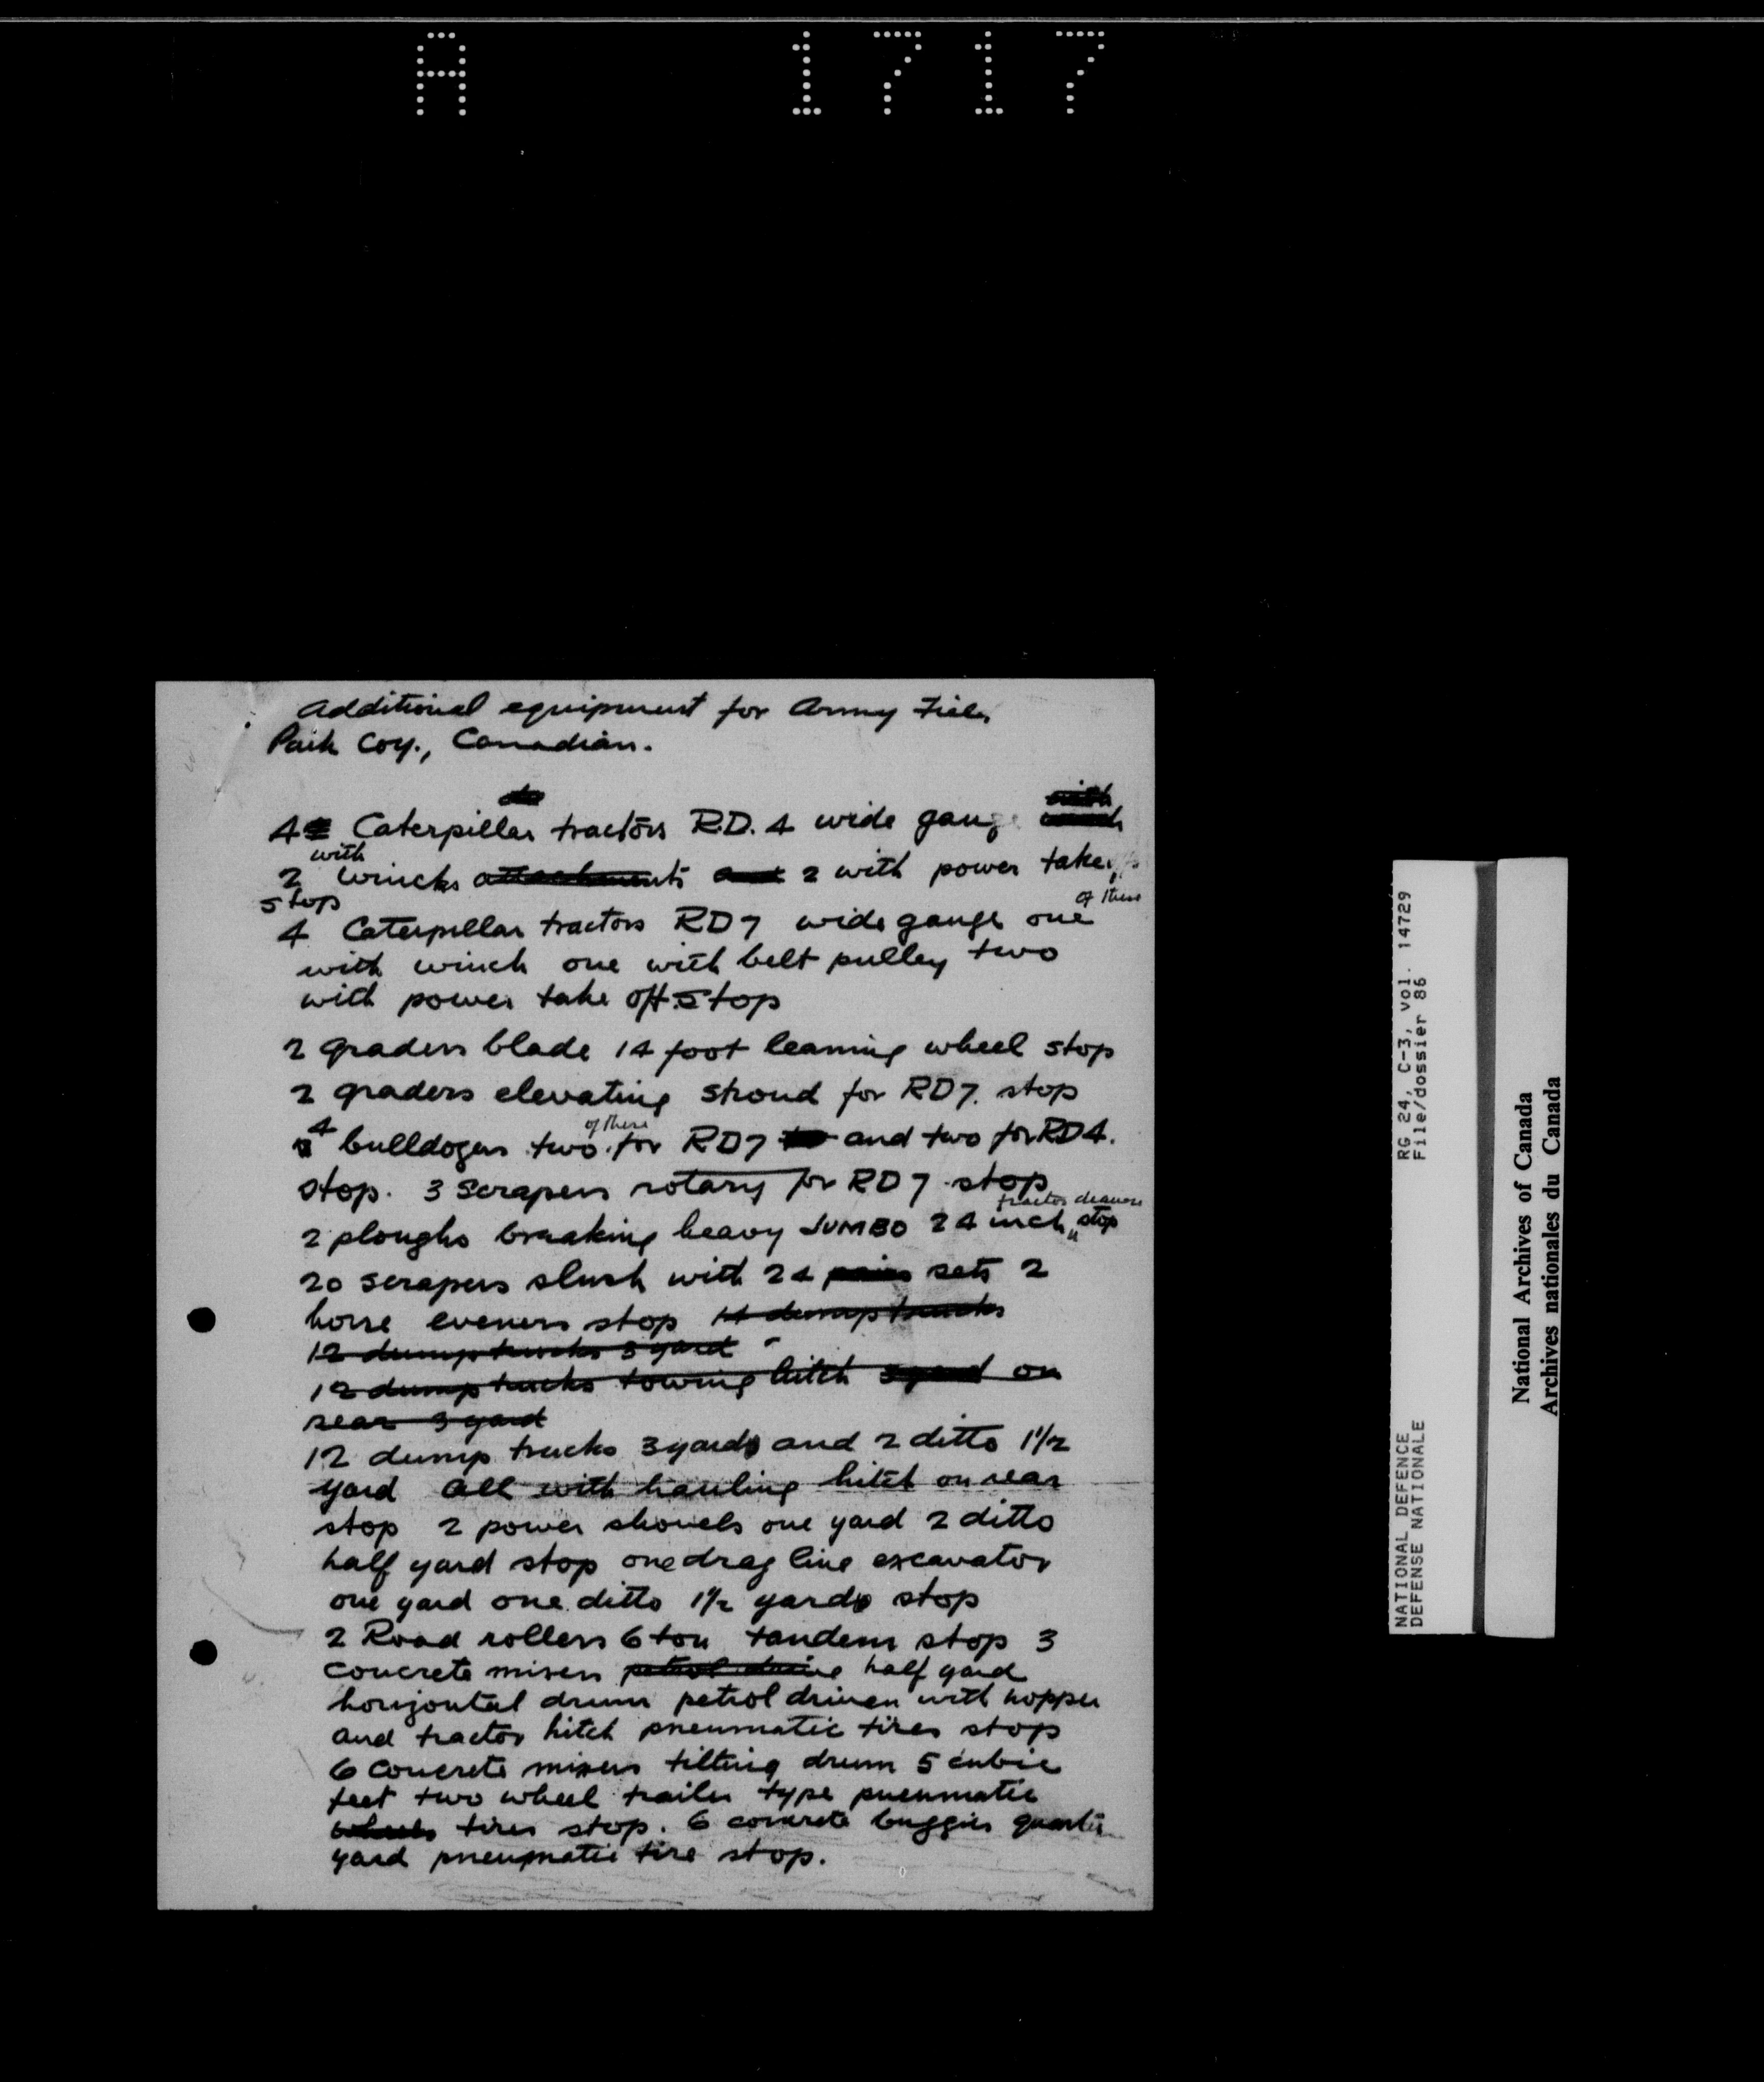 A 1717
Additional equipment for Army Field
Park Coy., Canadian.
4 Caterpillar tractors R.D. 4 wide gauge
with
2 winches attachments and 2 with power take
stop
of these
4 Caterpillar tractors RD7 wide gauge one
with winch one with belt pulley two
with power take off stop
2 graders blade 14 foot leaning wheel stop
2 graders elevating Stroud for RD7. stop
of these
4 bulldozers two for RD7 and two for RD4.
stop. 3 Scrapers rotary for RD7 stop
tractor drawn
2 ploughs breaking heavy JUMBO 24 inch stop
20 scrapers slush with 24 pairs sets 2
horse eveners stop 14 dump trucks
12 dump trucks 3 yard
12 dump trucks towing hitch 3 yard on
rear 3 yard
12 dump trucks 3 yard and 2 ditto 1 1/2
yard all with hauling hitch on rear
stop 2 power shovels one yard 2 ditto
half yard stop one drag line excavator
one yard one ditto 1 1/2 yard stop
2 Road rollers 6 ton tandem stop 3
concrete mixers petrol drive half yard
horizontal drum petrol driven with hopper
and tractor hitch pneumatic tires stop
6 concrete mixers tilting drum 5 cubic
feet two wheel trailer type pneumatic
wheels tires stop. 6 concrete buggies quarter
yard pneumatic tire stop.
NATIONAL DEFENCE RG 24, C-3, vol. 14729
DEFENSE NATIONALE File/dossier 86
National Archives of Canada
Archives nationales du Canada